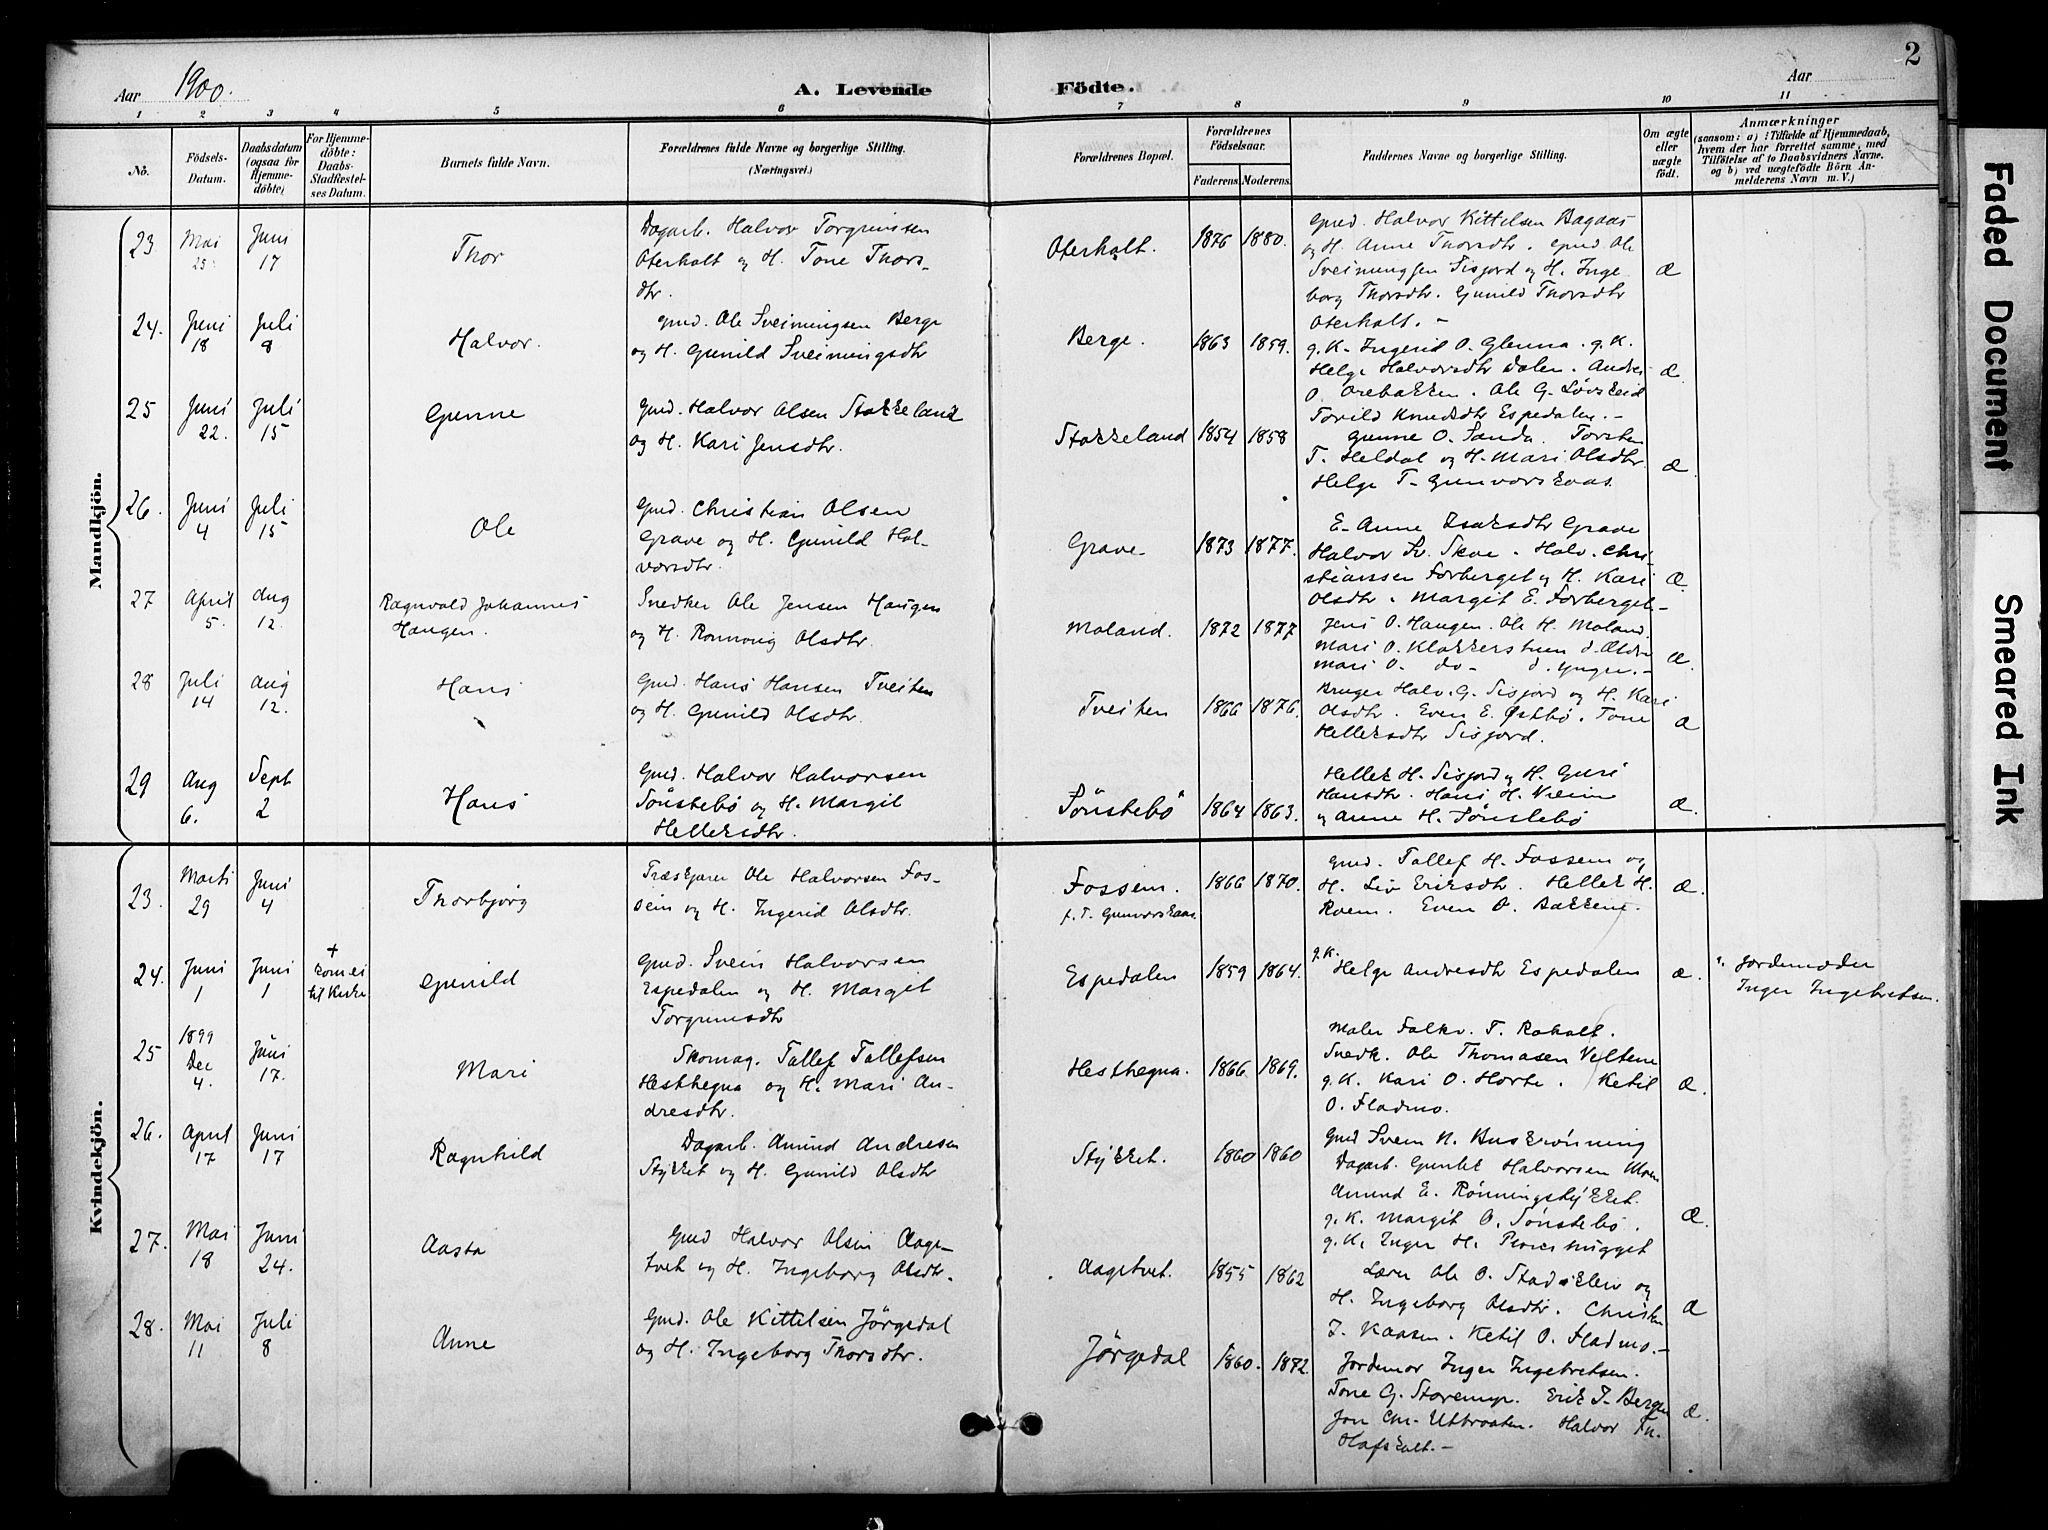 2
Aar 1900.
A. Levende Födte.
Aar
1 2 3 4 5 6 7 8 9 10 11
No.
Födsels-Datum.
Daabsdatum (ogsaa for Hjemmedöbte)
For Hjemmedöbte: Daabs Stadfæstelses Datum.
Barnets fulde Navn.
Forældrenes fulde Navne og borgerlige Stilling.
(Næringsvei.)
Forældrenes Bopæl.
Forældrenes Födselsaar.
Faderens. Moderens.
Faddernes Navne og borgerlige Stilling.
Om ægte eller uægte födt.
Anmærkninger
(saasom: a) i Tilfælde af Hjemmedaab, hvem der har forrettet samme, med Tilföielse af to Daabsvidners Navne. og b) ved uægtefödte Börn Anmelderens Navn m. V.)
Mandkjön.
23. Mai 25. Juni 17
Thor
Dagarb. Halvor Torgrimsen
Oterholt og H. Tone Thors-
dtr.
Oterholt. 1876 1880.
Gmd. Halvor Kittelsen Bagaas
og H. Anne Thorsdtr. Gmd Ole
Sveinungsen Sisjord og H. Inge
borg Thorsdtr. Gunild Thorsdtr
Oterholt. -
Æ
24. Juni 18 Juli 8
Halvor.
Gmd. Ole Sveinungsen Berge
og H. Gunild Sveinungsdtr
Berge. 1863 1859.
g. K. Ingerid O. Glenna. g. K.
Helge Halvorsdtr Dalen. Andres
O. Orebakken. Ole G. Løvskeid
Torild Knudsdtr Espedalen. -
Æ
25 Juni 22. Juli 15
Gunne
Gmd. Halvor Olsen Stokkeland
og H. Kari Jensdtr.
Stokkeland 1854 1858
Gunne O. Sanda. Torsten
T. Heldal og H. Mari Olsdtr.
Helge T. Gunvorskaas.
Æ.
26. Juni 4 Juli 15
Ole
Gmd. Christian Olsen
Grave og H. Gunild Hal-
vorsdtr.
Grave 1873 1877.
E. Anne Isaksdtr Grave
Halvor Sv. Skoe. Halv. Chri-
stiansen Forberget og H. Kari
Olsdtr. Margit E. Forberget-
Æ.
27 April 5. Aug 12.
Ragnvald Johannes
Haugen.
Snedker Ole Jensen Haugen
og H. Ronnoug Olsdtr.
Moland. 1872 1877
Jens O. Haugen. Ole H. Moland.
Mari O. Klokkerstuen d. Ældre
Mari O. do - d. yngre. -
Æ.
28 Juli 14 Aug 12.
Hans
Gmd. Hans Hansen Tveiten
og H. Gunild Olsdtr.
Tveiten 1866 1876.
Bruger Halv. G. Sisjord og H. Kari
Olsdtr. Even E. Østbø. Tone
Helleksdtr Sisjord.
Æ
29 Aug 6. Sept 2
Hans
Gmd. Halvor Halvorsen
Sönstebö og H. Margit
Helleksdtr.
Sönstebö 1864 1863.
Hellek H. Sisjord og H. Guri
Hansdtr. Hans H.
og Anne H. Sönstebö
Æ.
Kvindekjön.
23. Marti 29 Juni 4
Thorbjörg
Træskjærer Ole Halvorsen Fos-
sem og H. Ingerid Olsdtr.
Fossem. 1866 1870.
f. T. Gunvorskaas.
Gmd. Tallef H. Fossem og
H. Liv Eriksdtr. Hellek H.
Roem. Even O. Bakkene.
Æ.
24. Juni 1 Juni 1
+ kom ei til Kirke
Gunild
Gmd. Svein Halvorsen
Espedalen og H. Margit
Torgrimsdtr
Espedalen 1859 1864.
g. K. Helge Andresdtr Espedalen
Æ.
Jordemoder
Inger Ingebretsen.
25 1899 Dec 4. Juni 17.
Mari
Skomag. Tallef Tallefsen
Hesthegna og H. Mari An-
dresdtr.
Hesthegna. 1866 1869.
Maler Folkv. T. Roholt.
Snedk. Ole Thomasen Veltene
g. K. Kari O. Horte. Ketil
O. Fladmo.
Æ.
26. April 17 Juni 17
Ragnhild
Dagarb. Amund Andresen
Stykket og H. Gunild Olsdtr
Stykket. 1860 1860
Gmd Svein N. Buskrønning
Dagarb. Gunlek Halvorsen Moen
Amund E. Rönningstykket.
g. K. Margit O. Sönstebö.
g. K. Inger H.
Æ.
27. Mai 18 Juni 24.
Aasta
Gmd Halvor Olsen Aage-
tvet og H. Ingeborg Olsdtr.
Aagetvet. 1855 1862
Lærer Ole O. Stadskleiv og
H. Ingeborg Olsdtr. Christen
J. Kaasen. Ketil O. Fladmo. -
Æ
28. Mai 11 Juli 8
Anne
Gmd. Ole Kittilsen Jörgedal
og H. Ingeborg Thorsdtr.
Jörgedal 1860. 1872.
Jordemor Inger Ingebretsen.
Tone G. Storemyr. Erik J. Bergen
Jon Chr. Utbraaten. Halvor Tn.
Hafskolt. -
Æ.
Faded Document
Smeared Ink